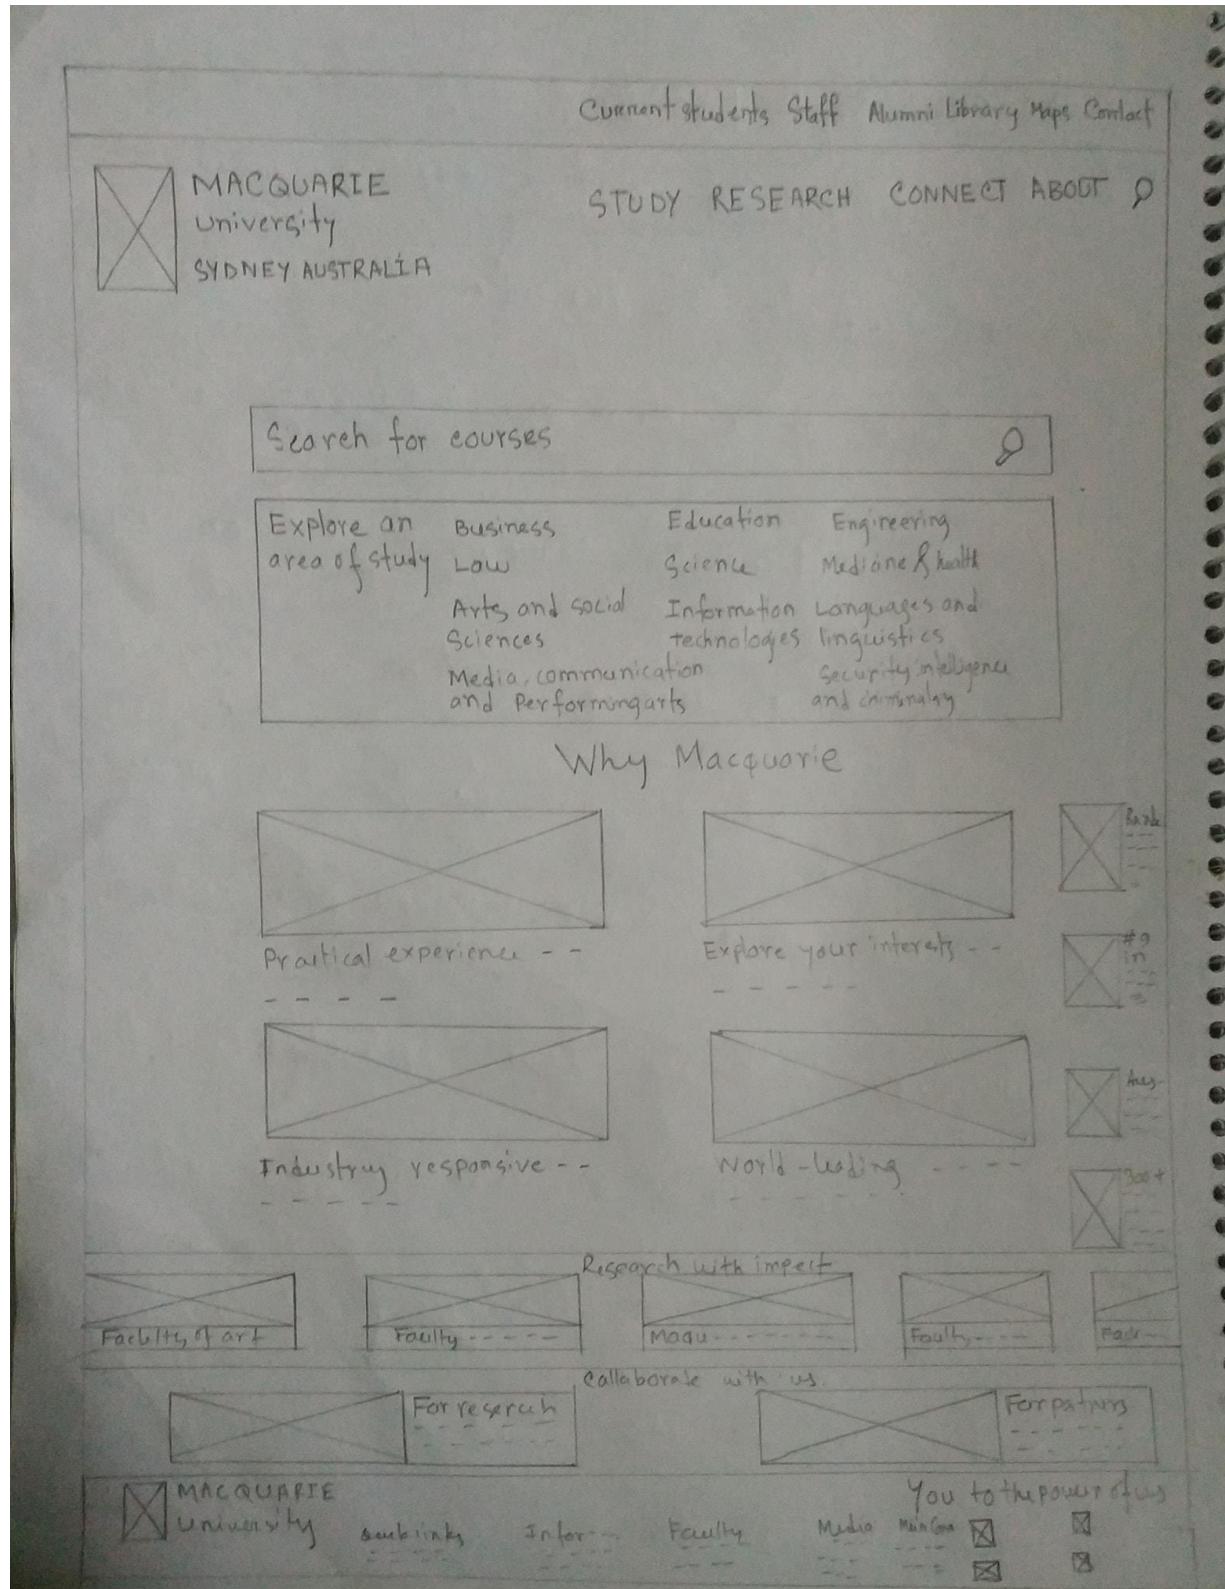 Current students Staff Alumni Library Maps Contact
MACQUARIE
University
SYDNEY AUSTRALIA
STUDY RESEARCH CONNECT ABOUT
Search for courses
Explore an
area of study
Business
Law
Arts and social
Sciences
Media, communication
and Performing arts
Education
Science
Information
technologies
Engineering
Medicine & health
Languages and
linguistics
Security intelligence
and
Why Macquarie
Practical experience - -
Explore your interests - -
Industruy responsive - -
World-leading - - - -
Rank
#9
in
300+
Research with impect
Facility of art
Faulty - - - - -
Maqu - - - - - -
Faulty - - - -
Collaborate with us.
For reserch
For patnrs
MACQUARIE
University
You to the power of us
Infor - - -
Faculty
Media